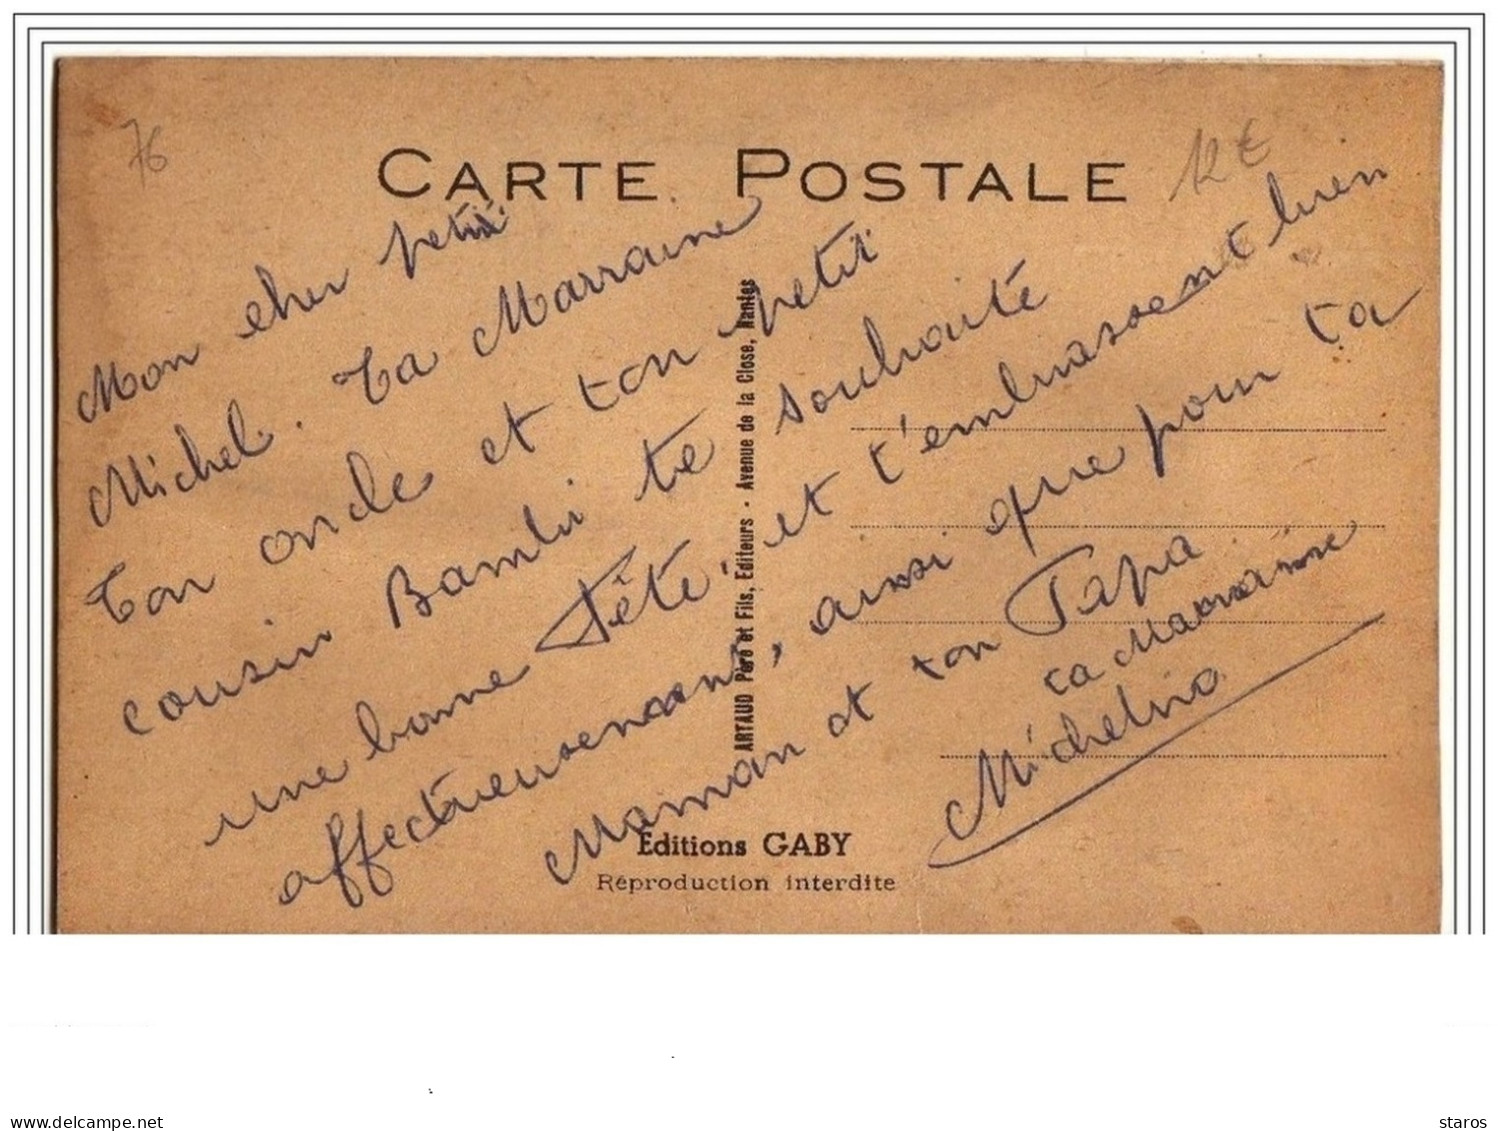 76
CARTE POSTALE
12 €
Mon cher petit
Michel. Ta Marraine
Ton oncle et ton petit
cousin Bambi te souhaite
une bonne Fête et t'embrassent bien
affectueusement, ainsi que pour ta
Maman et ton Papa.
ta Marraine
Micheline
ARTAUD Père et Fils, Editeurs - Avenue de la Close, Nantes
Editions GABY
Réproduction interdite
delcampe.net
staros